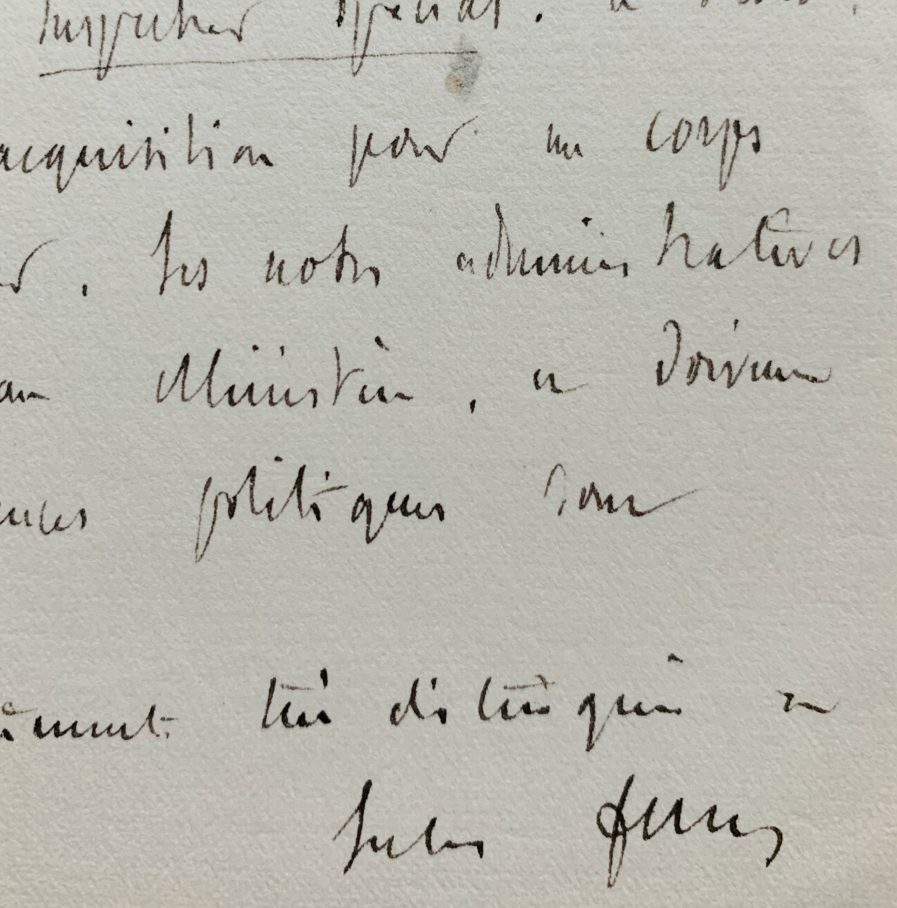 Inspecteur spécial. a
acquisition pour un corps
. Ses notes administratives
au Ministère, et doivent
politiques sont
très distingués
Jules Ferry